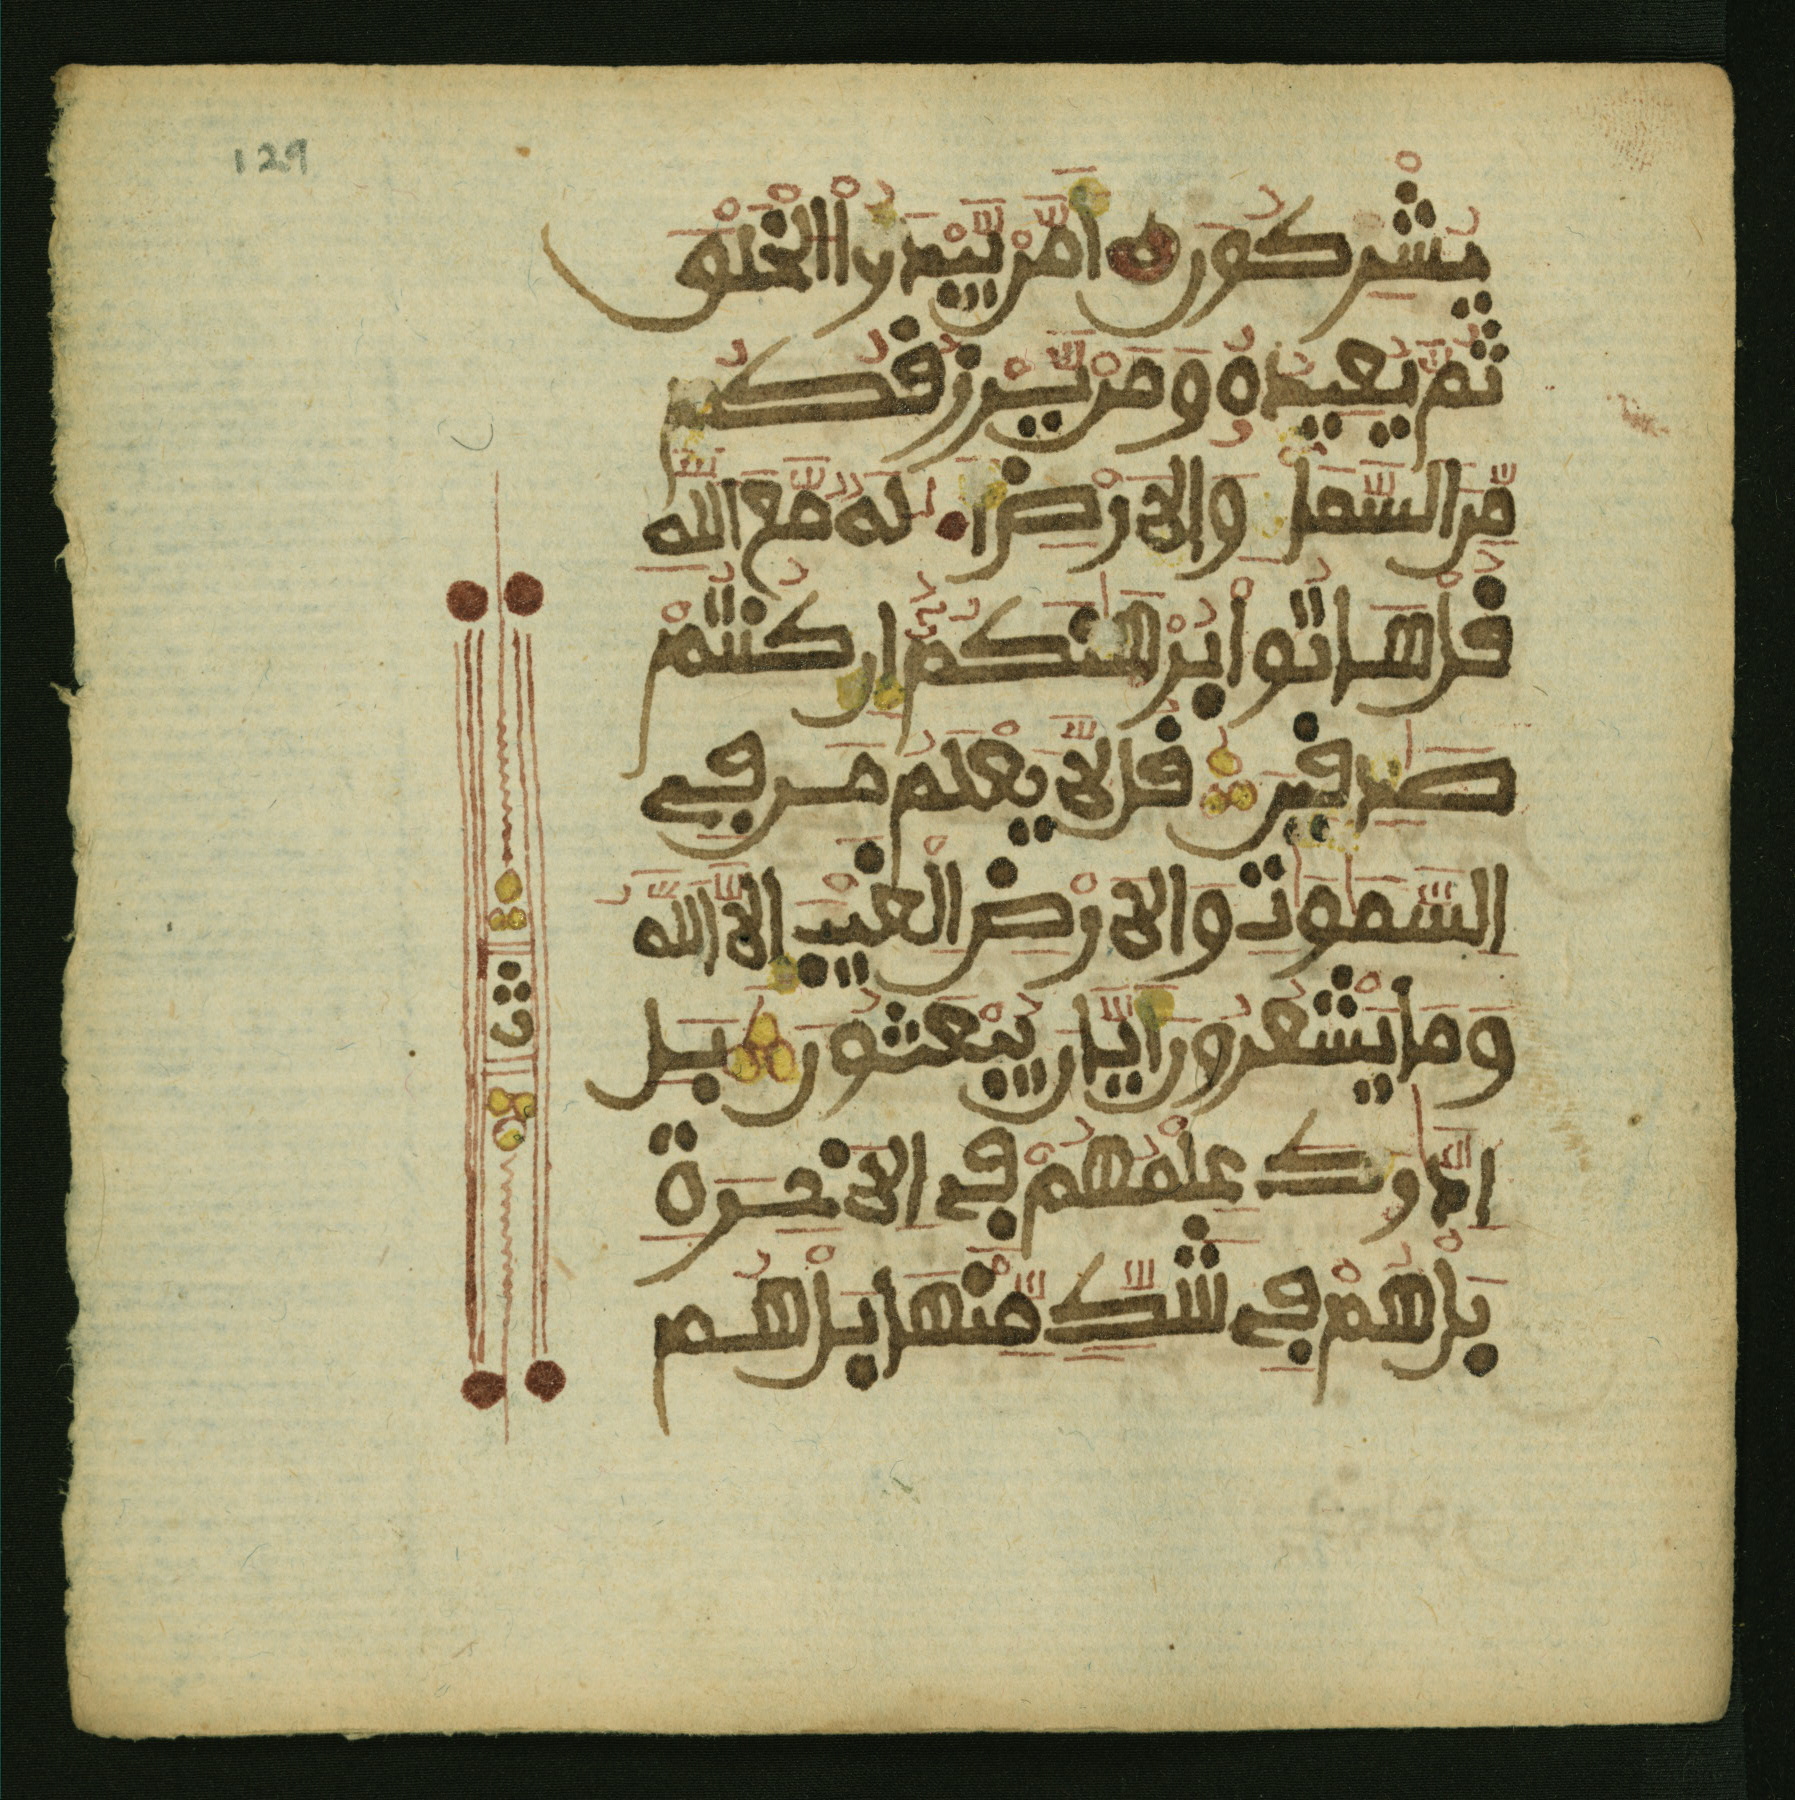 129
يُشْرِكُونَ أَمَّنْ يَّبْدَؤُاْ الْخَلْقَ
ثُمَّ يُعِيدُهُ وَمَنْ يَّرْزُقُكُم
مِّنَ السَّمَا وَالَارْضِ أَ.لَهٌ مَّعَ اللَّهِ
قُلْ هَاتُواْ بُرْهَٰنَكُمُ إِن كُنتُمْ
صَٰدِقِينَ قُل لَّا يَعْلَمُ مَن فِے
السَّمَٰوَٰتِ وَالَارْضِ الْغَيْبَ إِلَّا اللَّهُ
وَمَا يَشْعُرُونَ أَيَّانَ يُبْعَثُونَ بَلِ
اِدَّٰرَكَ عِلْمُهُمْ فِے الَاخِرَةِ
بَلْ هُمْ فِے شَكٍّ مِّنْهَا بَلْ هُم
ث